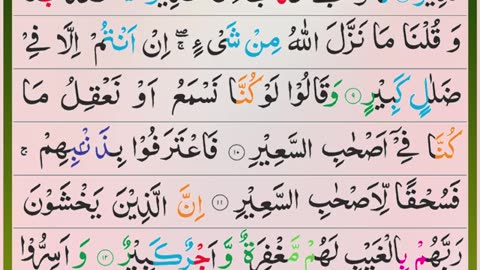 وَ قُلْنَا مَا نَزَّلَ اللّٰهُ مِنْ شَیْءٍ ۖۚ اِنْ اَنْتُمْ اِلَّا فِیْ
ضَلٰلٍ كَبِیْرٍ ۹ وَقَالُوْا لَوْ كُنَّا نَسْمَعُ اَوْ نَعْقِلُ مَا
كُنَّا فِیْۤ اَصْحٰبِ السَّعِیْرِ ۱۰ فَاعْتَرَفُوْا بِذَنْۢبِهِمْ ۚ
فَسُحْقًا لِّاَصْحٰبِ السَّعِیْرِ ۱۱ اِنَّ الَّذِیْنَ یَخْشَوْنَ
رَبَّهُمْ بِالْغَیْبِ لَهُمْ مَّغْفِرَةٌ وَّ اَجْرٌ كَبِیْرٌ ۱۲ وَ اَسِرُّوْا